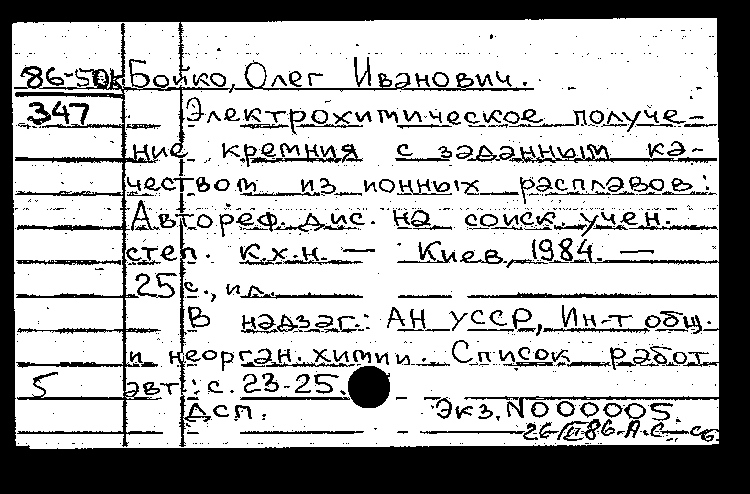 86-50к Бойко, Олег Иванович.
347 Электрохимическое получе-
ние кремния с заданным ка-
чеством из ионных расплавов:
Автореф. дис. на соиск. учен.
степ. к.х.н. — Киев, 1984. —
25 с., ил.
В надзаг.: АН УССР, Ин-т общ.
и неорган. химии. Список работ
5 авт.: с. 23-25.
Дсп. Экз. N000005.
26/II 86. А.С.